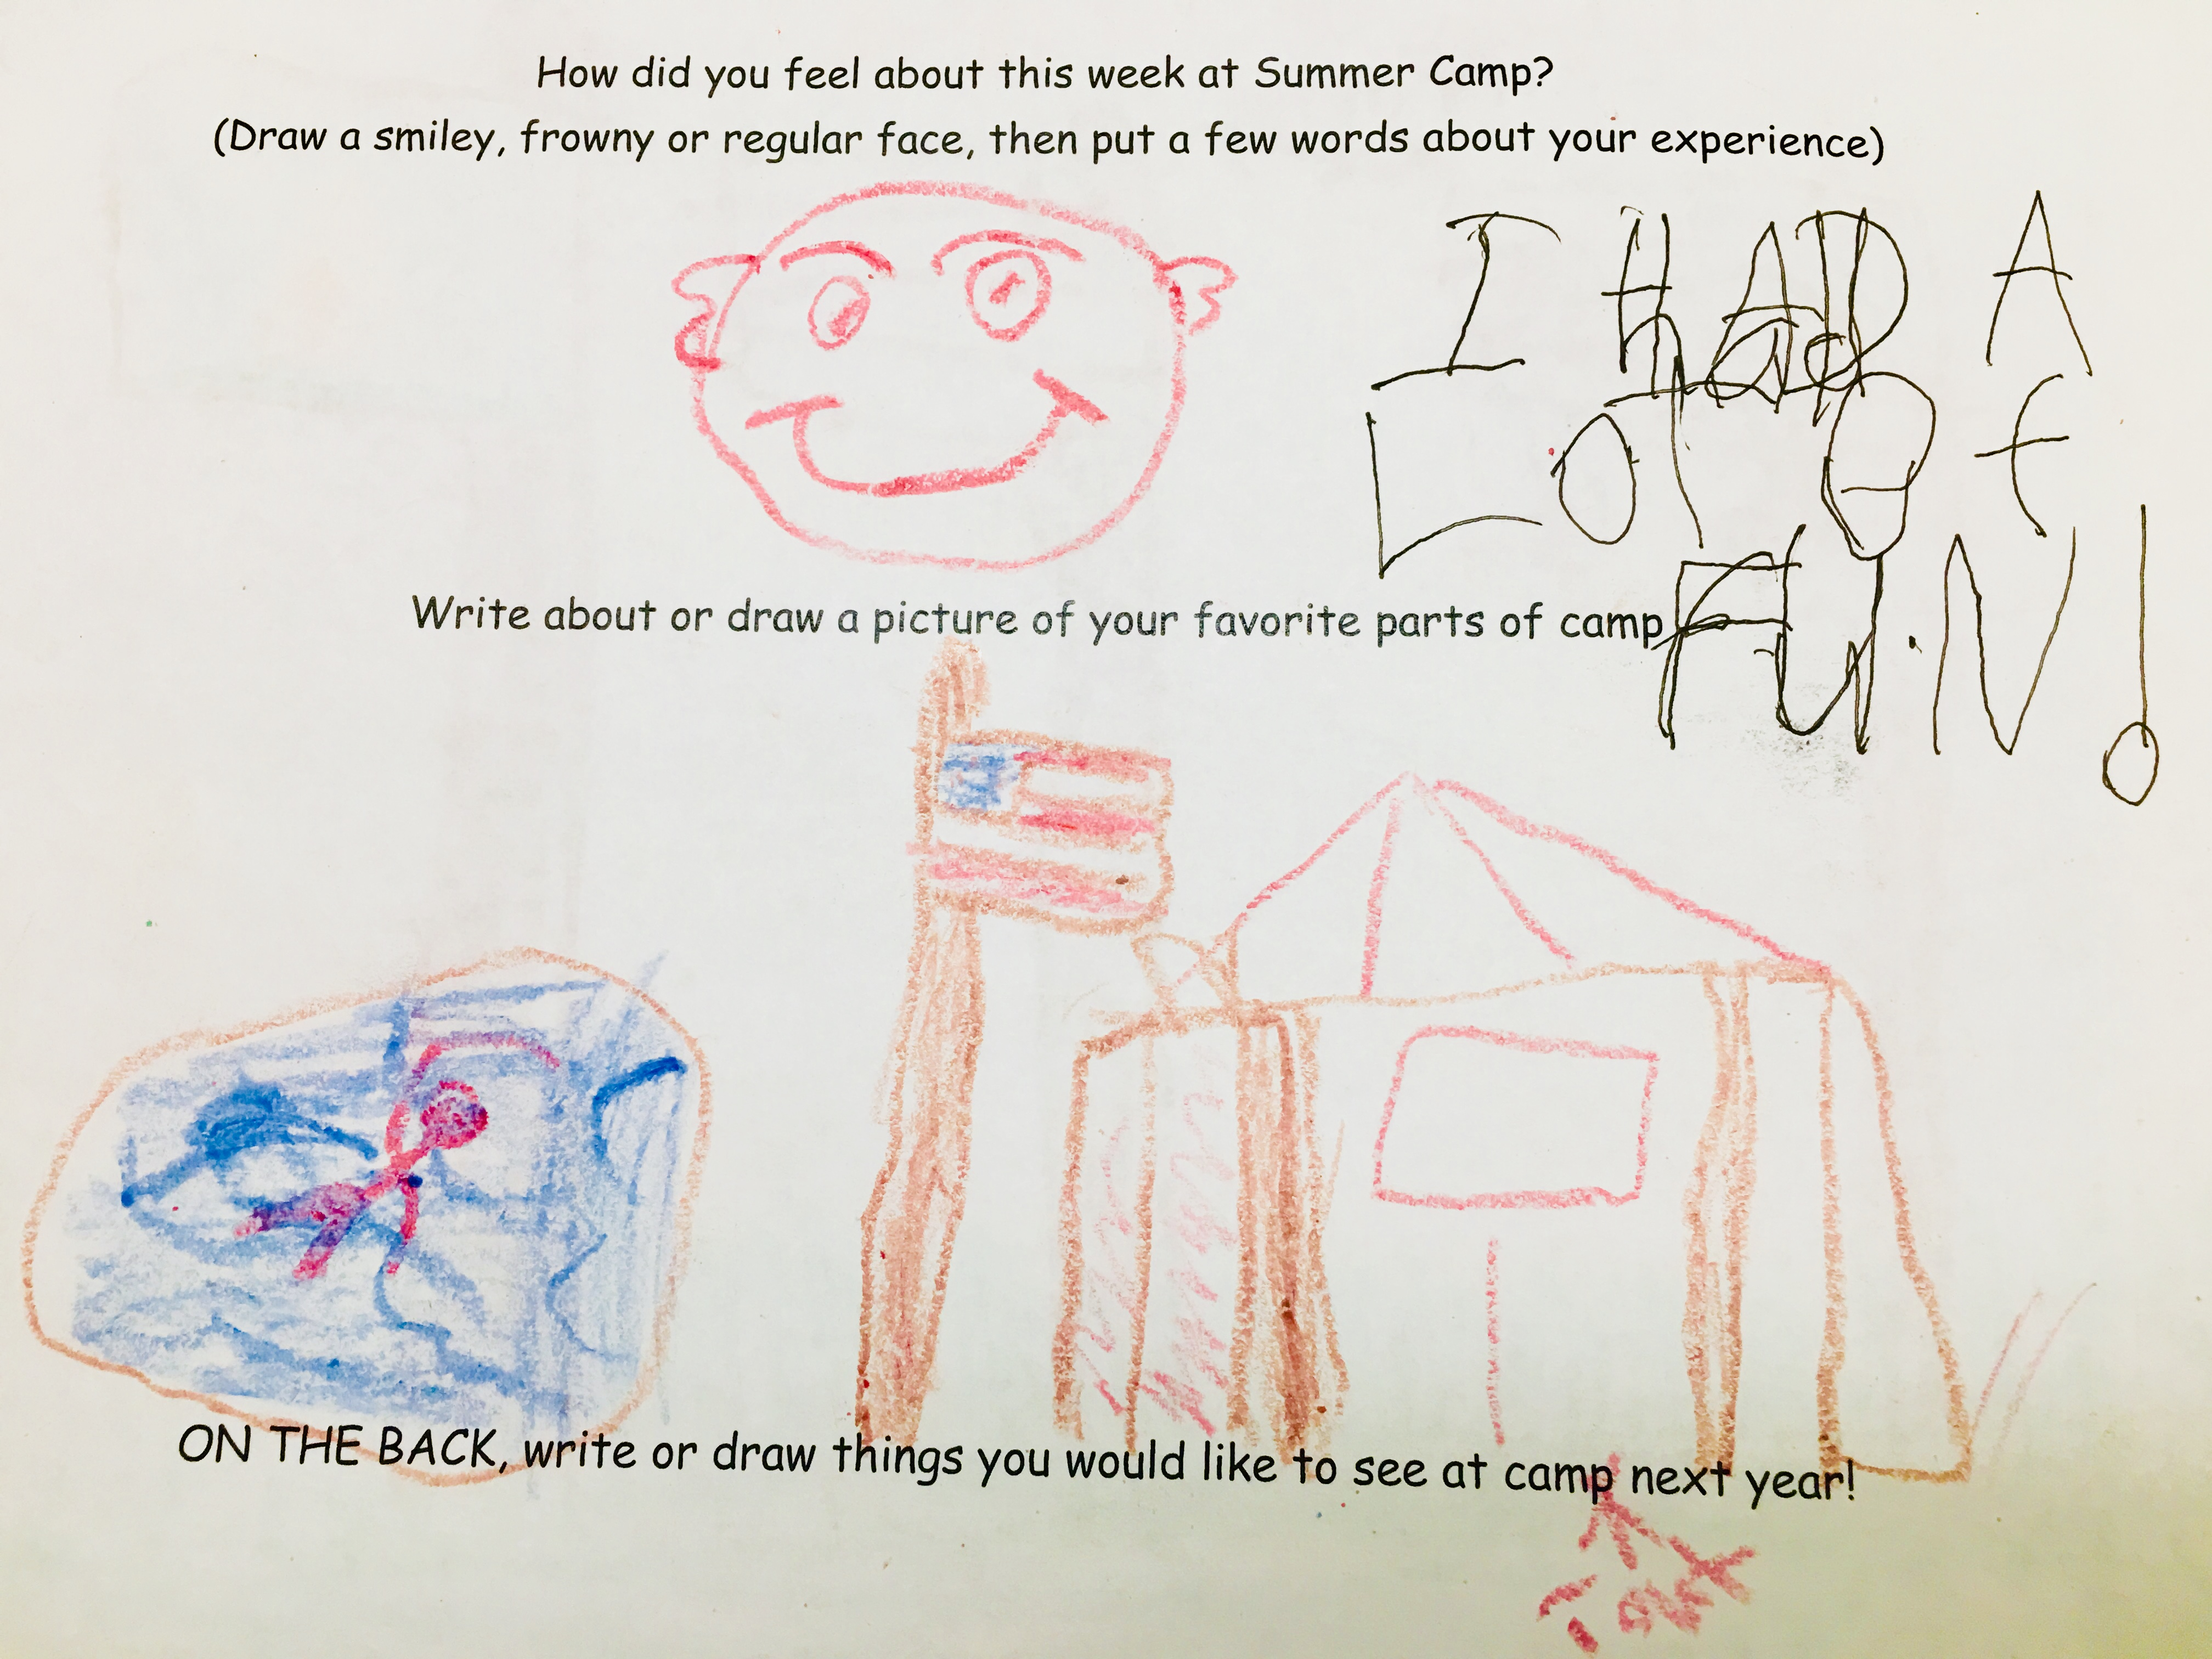 How did you feel about this week at Summer Camp?
(Draw a smiley, frowny or regular face, then put a few words about your experience)
I HAD A
LOT OF
FUN!
Write about or draw a picture of your favorite parts of camp
ON THE BACK, write or draw things you would like to see at camp next year!